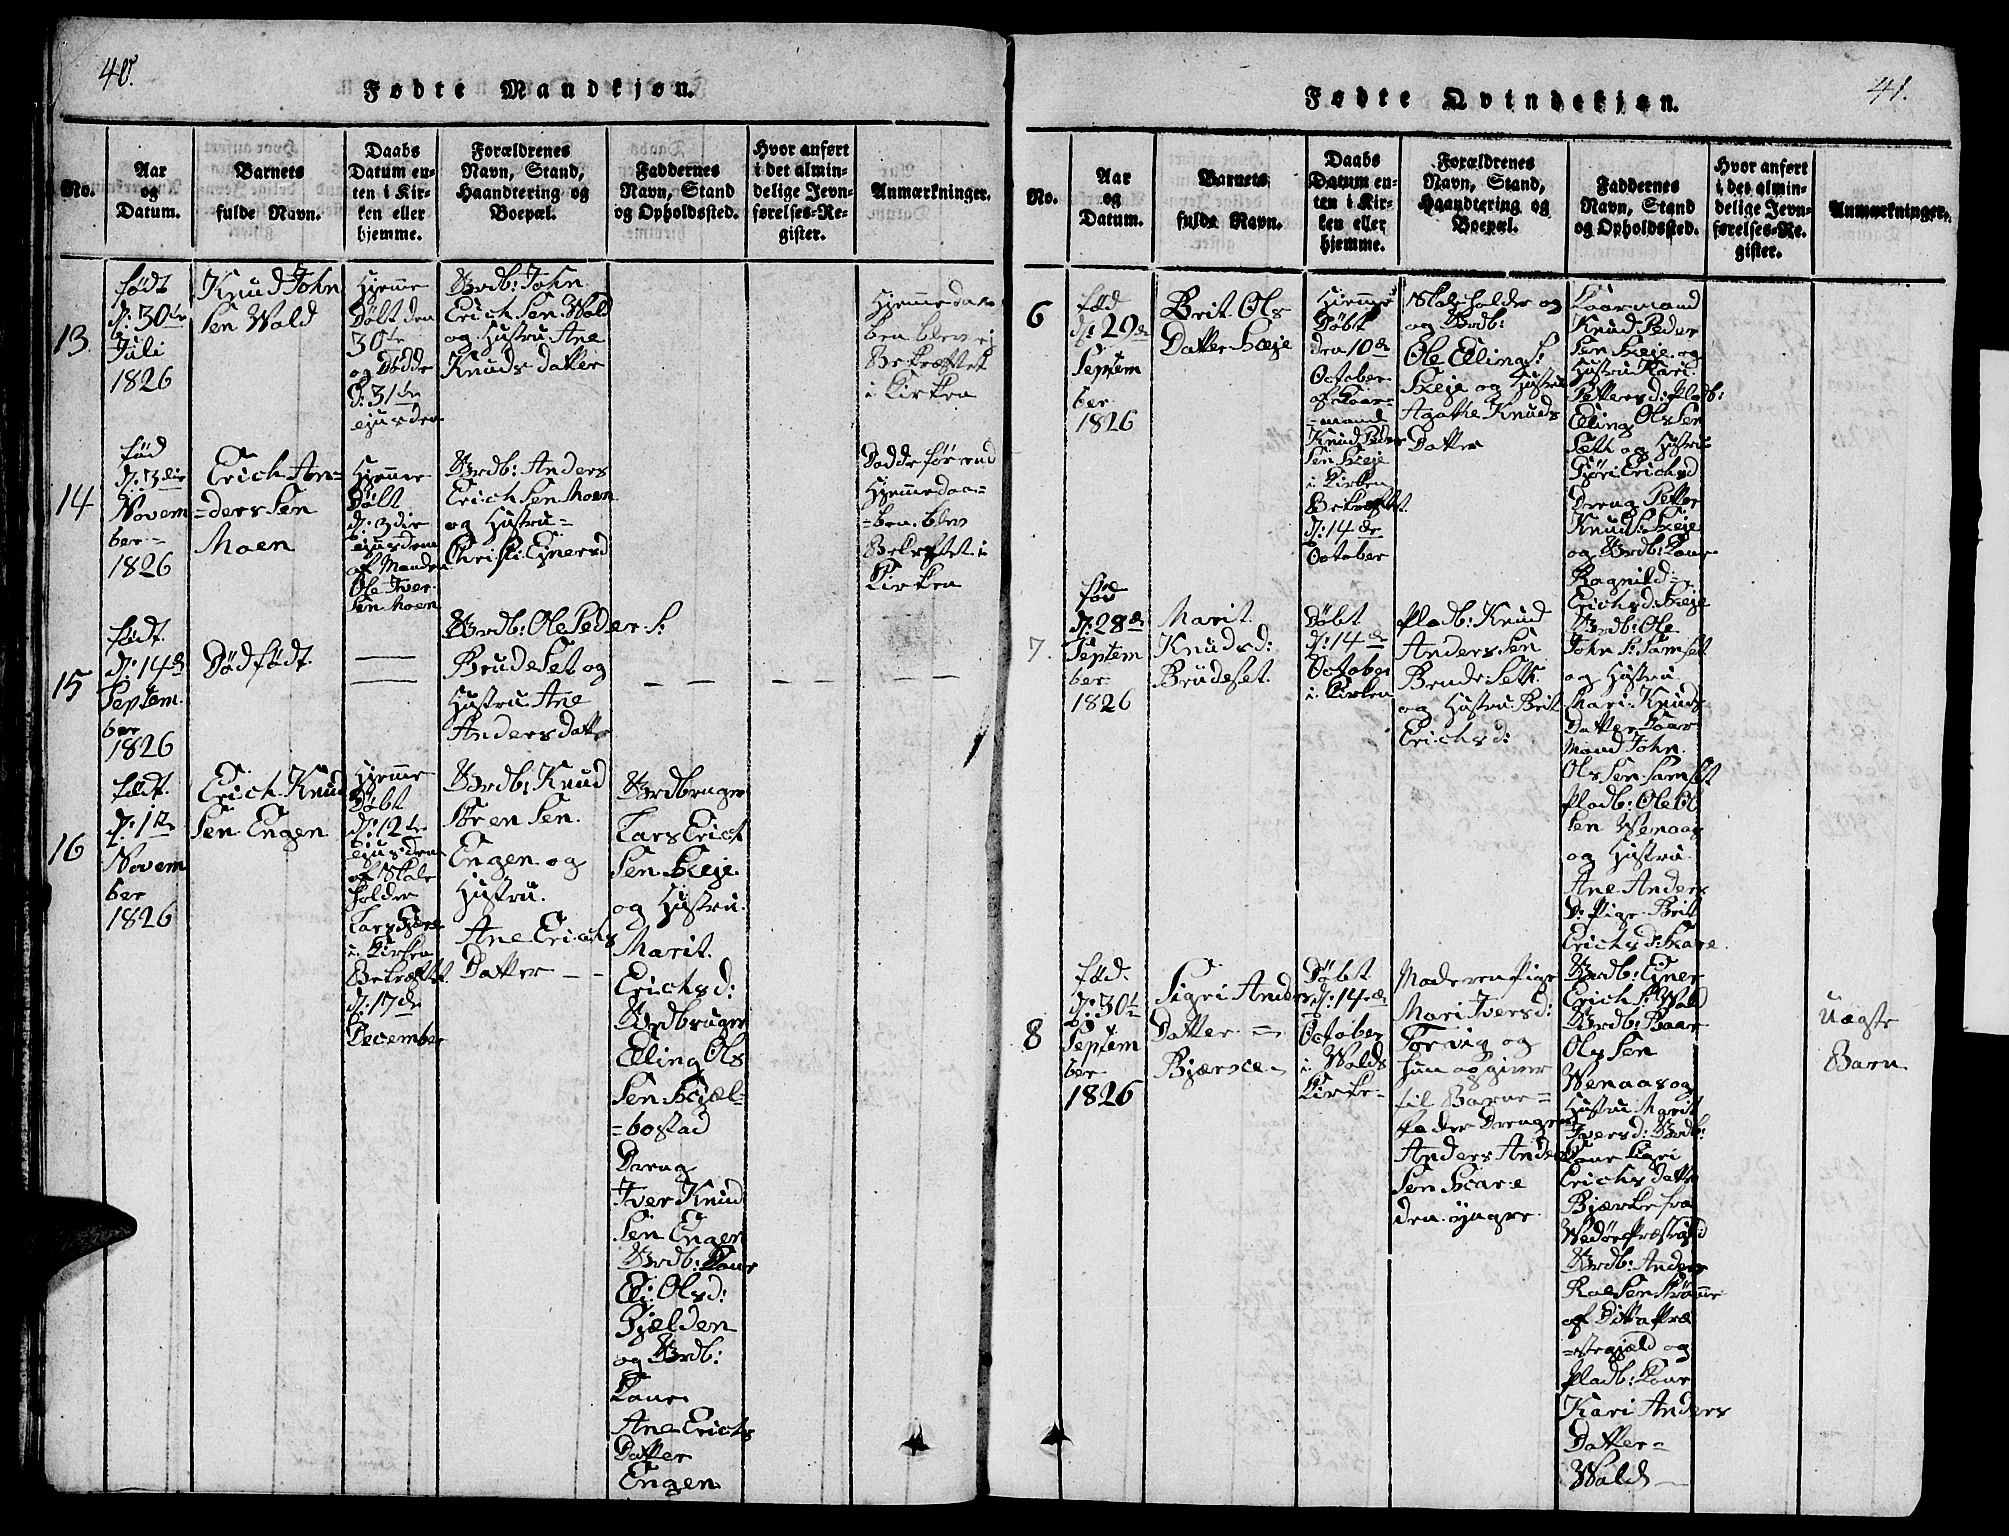 40.
Fødte Mandkjøn.
No.
Aar
og
Datum.
Barnets
fulde Navn.
Daabs
Datum en-
ten i Kir-
ken eller
hjemme.
Forældrenes
Navn, Stand,
Haandtering og
Boepæl.
Faddernes
Navn, Stand
og Opholdssted.
Hvor anført
i det almin-
delige Jevn-
førelses-Re-
gister.
Anmærkninger.
13
født
d: 30te
Juli
1826
Knud John
Sen Wold
Hjemme
Døbt den
30te
og Dødde
d: 31de
ejusdem
Brdb: John
Erich Sen Wold
og Hustru Ane
Knuds datter
Hjemmedaa
ben blev ej
Bekræftet
i Kirken
14
fød
d: 3die
Novem
ber
1826
Erich An=
=ders Sen
Moen
Hjemme
Døbt
d: 3die
ejusdem
af Manden
Ole Iver
Sen Moen
Brdb: Anders
Erich Sen Moen
og Hustru=
Christi Ejnersd
Dødde før end
Hjemmedaa=
=ben blev
Bekræftet i
Kirken
15
født
d: 14de
Septem
ber
1826
Død født
Brdb: Ole Peder S:
Brude Set og
Hustru Ane
Anders datter
16
født
d: 1te
Novem
ber
1826
Erich Knud
Sen Engen
Hjemme
Døbt
d: 12te
ejusdem
af Skole
holder
Lars
i Kirken
Bekræftet
d: 17de
December
Brdb: Knud
Søren Sen
Engen og
Hustru
Ane Erichs
Datter
Brdbruger
Lars Erich
Sen Skeje
og Hustru
Marit
Erichsd:
Brdbruger
Elling Ols
Sen Skjæl=
=bostad
Dreng
Iver Knud
Sen Engen
Brdb: Kone
Eli Olsd:
Gjælden
og Brdb:
Kone
Ane Erichs
Datter
Engen
41.
Fødte Qvindekjøn.
No.
Aar
og
Datum.
Barnets
fulde Navn.
Daabs
Datum en-
ten i Kir-
ken eller
hjemme.
Forældrenes
Navn, Stand,
Haandtering og
Boepæl.
Faddernes
Navn, Stand
og Opholdssted.
Hvor anført
i det almin-
delige Jevn-
førelses-Re-
gister.
Anmærkninger.
6
fød
d: 29de
Septem
ber
1826
Brit Ols
Datter Skeje
Hjemme
Døbt
den 10de
October
af Kaar=
=mand
Knud Peder
Sen Skeje
i Kirken
Bekræftet
d: 14de
October
Skoleholder og
og Brdb:
Ole Elling S:
Skeje og Hustru
Agathe Knuds
Datter
Kaarmand
Knud Peder
Sen Skeje og
Hustru Kari
Pettersd: Pladb:
Elling Ols Sen
Seth og Hustru
Gjøri Erichsd
Dreng Petter
Knud S: Skeje
og Brdb: Kone
Ragnild
Erichsd: Skeje
7.
fød
d: 28de
Septem
ber
1826
Marit
Knudsd:
Brüdeset
Døbt
d: 14de
October
i Kirken
Pladb: Knud
Anders Sen
Brude Seth
og Hustru Brit
Erichsd:
Brdb: Ole
John S: Samset
og Hustru
Mari Knuds
Datter Kaar
Mand John
Ols Sen Samset
Pladb: Ole Ol
Sen Wenaas
og Hustru
Ane Anders
D: Pige Brit
Erichsd: Skare
8
fød
d: 30te
Septem
ber
1826
Sigri Anders
Datter =
Bjærke
Døbt
d: 14de
October
i Wolds
Kirke
Moderen Pige
Mari Iversd:
Torvig og
hun opgiver
til Barne=
fader Drengen
Anders Anders
Sen Skare
den yngre
Brdb: Ejner
Erich S: Wold
Brdb: Baar
Ols Sen
Wenaas og
Hustru Marit
Iversd: Brdb:
Kone Kari
Erichs datter
Bjærke fra
Wedøe Præstegjeld
Brdb: Anders
Roe Sen
af Ditto Præ
=stegjæld og
Pladb: Kone
Kari Anders
Datter=
Wold
Uægte
Barn